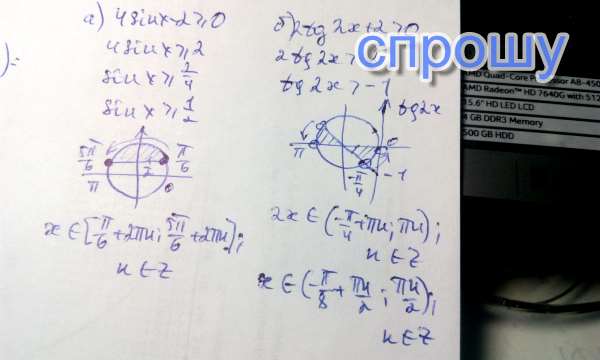 а) 4sinx-2≥0
4sinx≥2
sinx≥2/4
sinx≥1/2
5π/6 π/6
π 1/2 0
x∈[π/6+2πn; 5π/6+2πn];
n∈Z
б) 2tg2x+2>0
2tg2x>
tg2x>-1
tg2x
π 0
-π/4 -1
2x∈(-π/4+πn; πn);
n∈Z
x∈(-π/8+πn/2; πn/2);
n∈Z
спрошу
AMD Quad-Core Processor A8-450
AMD Radeon™ HD 7640G with 512
15.6" HD LED LCD
4 GB DDR3 Memory
500 GB HDD